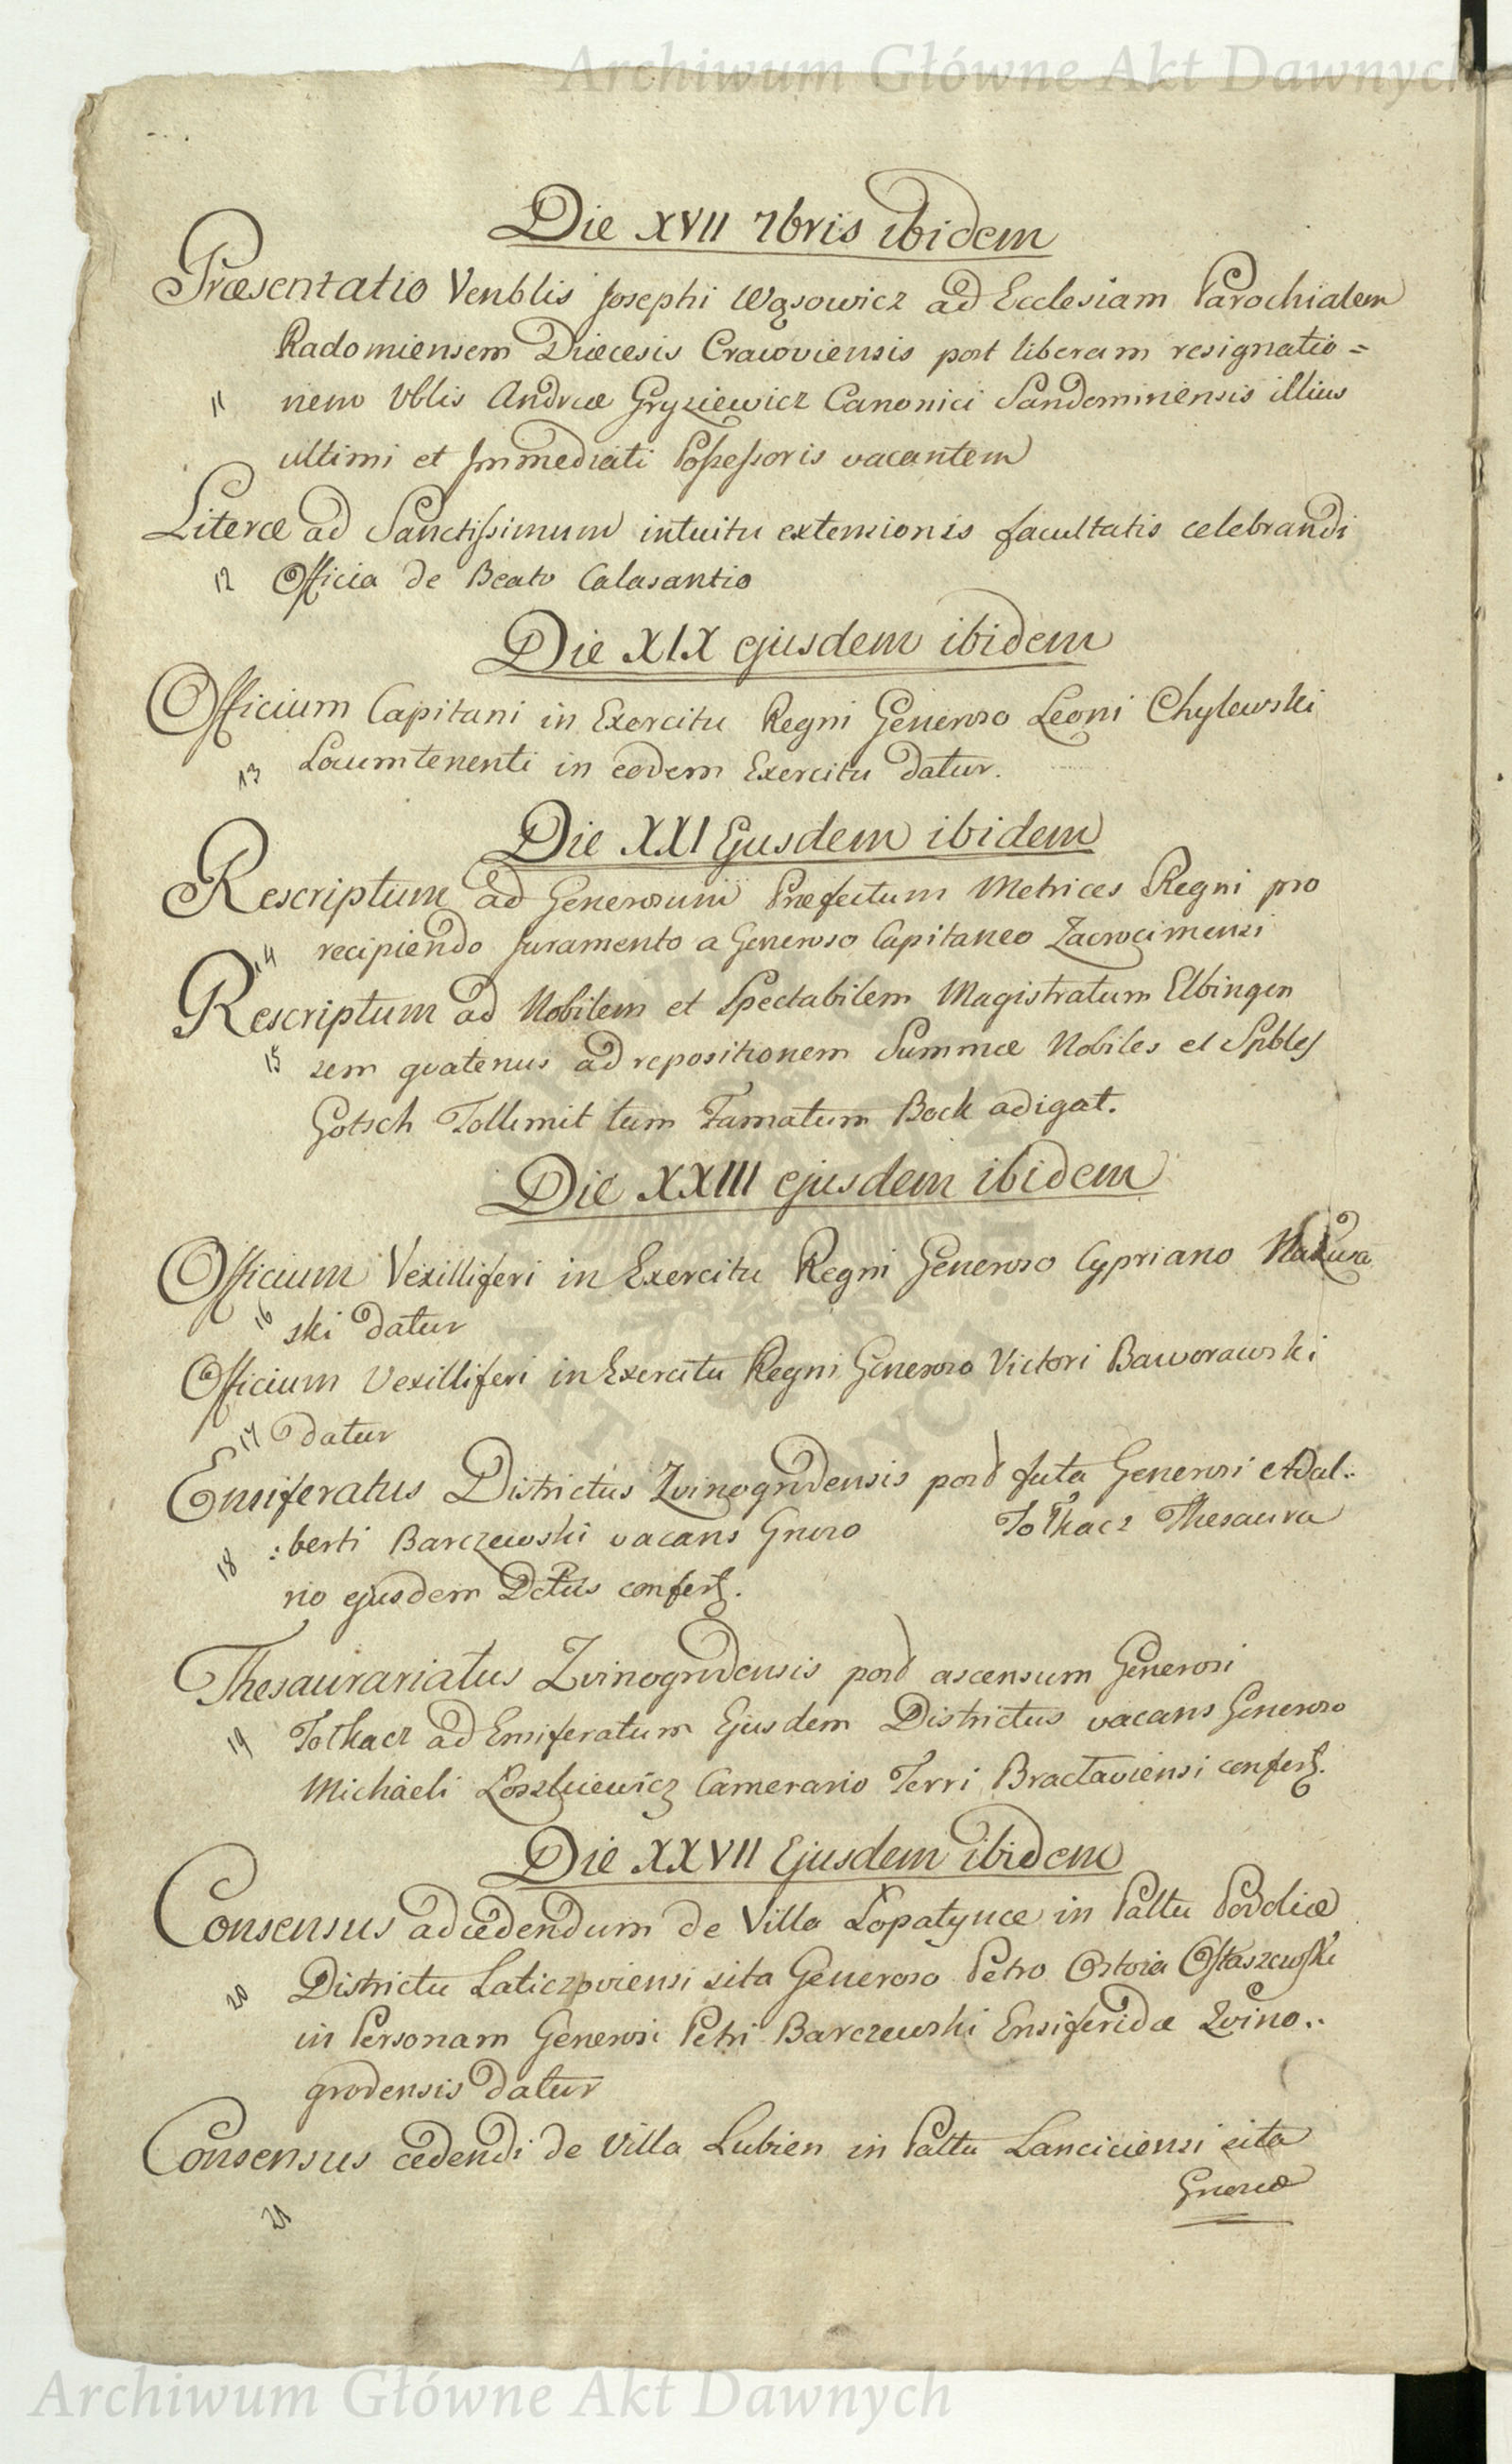 Archiwum Główne Akt Dawnych
Die XVII 7bris ibidem
Præsentatio Venblis Josephi Wąsowicz ad Ecclesiam Parochialem
Radomiensem Diæcesis Cracoviensis post liberam resignatio=
11 nem Vblis Andreæ Gryziewicz Canonici Sandomiriensis illius
ultimi et Immediati Possessoris vacantem
Literæ ad Sanctissimum intuitu extensionis facultatis celebrandi
12 Officia de Beato Calasantio
Die XIX ejusdem ibidem
Officium Capitani in Exercitu Regni Generoso Leoni Chylewski
13 Locumtenenti in eodem Exercitu datur.
Die XXI Ejusdem ibidem
Rescriptum ad Generosum Præfectum Metrices Regni pro
14 recipiendo Juramento a Generoso Capitaneo Zacrocimensi
Rescriptum ad Nobilem et Spectabilem Magistratum Elbingen
15 sem quatenus ad repositionem Summæ Nobiles et Spbles
Gotsch Tollimit tum Famatum Bock adigat.
Die XXIII ejusdem ibidem
Officium Vexilliferi in Exercitu Regni Generoso Cypriano
16 ski datur
Officium Vexilliferi in Exercitu Regni Generoso Victori Baworowski
17 datur
Ensiferatus Districtus Zvinogrodensis post fata Generosi Adal..
18 :berti Barczewski vacans Gnroso Tołkacz Thesaura
rio ejusdem Dctus confert.
Thesaurariatus Zvinogrodensis post ascensum Generosi
19 Tołkacz ad Ensiferatum Ejusdem Districtus vacans Generoso
Michaeli Łoszkiewicz Camerario Terri Bractaviensi confert.
Die XXVII Ejusdem ibidem
Consensus ad cedendum de Villa Łopatynce in Pałtu Podoliæ
20 Districtu Laticzoviensi sita Generoso Petro Ostoia Ostaszewski
in Personam Generosi Petri Barczewski Ensiferidæ Zvino..
grodensis datur
Consensus cedendi de Villa Lubien in Pałtu Lanciciensi sita
21 Gnosæ
Archiwum Główne Akt Dawnych